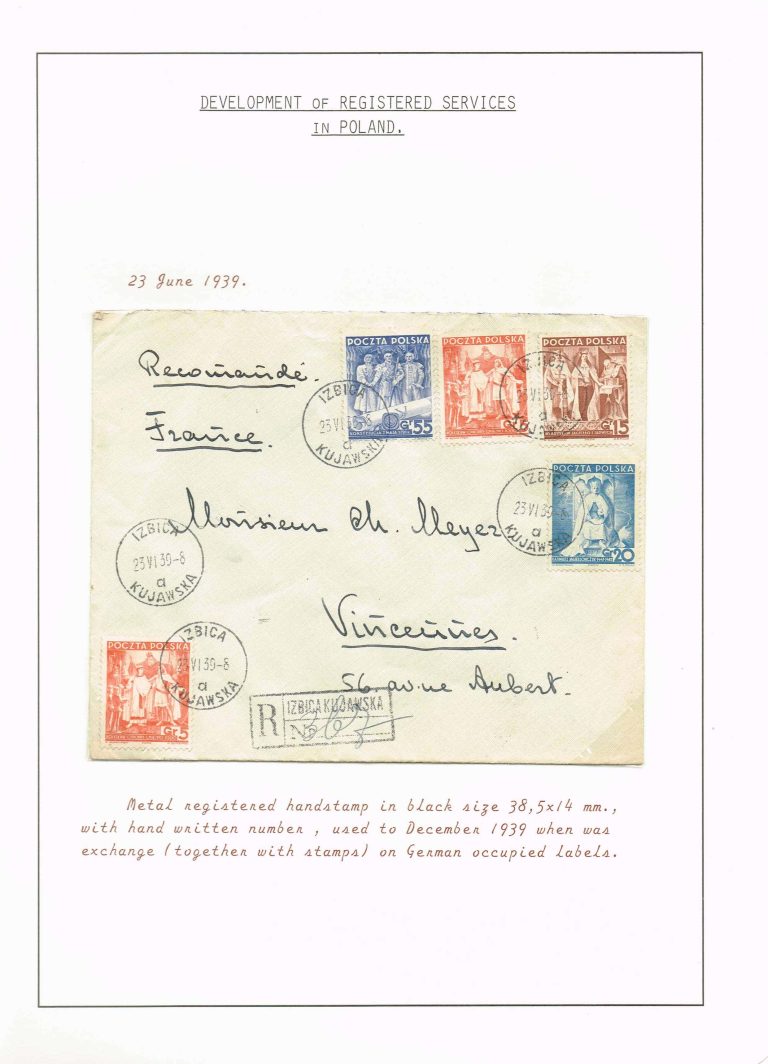 DEVELOPMENT OF REGISTERED SERVICES
IN POLAND.
23 June 1939.
Recomandé.
France.
POCZTA POLSKA
POCZTA POLSKA
POCZTA POLSKA
IZBICA
KUJAWSKA
a
Gr 55
Gr
IZBICA
23VI39-8
a
KUJAWSKA
Gr 15
POCZTA POLSKA
IZBICA
23VI39-8
a
KUJAWSKA
Gr 20
Monsieur Ch. Meyer
IZBICA
23VI39-8
a
KUJAWSKA
Vincennes.
56. av.ue Aubert.
POCZTA POLSKA
IZBICA
23VI39-8
a
KUJAWSKA
Gr 5
R
IZBICA KUJAWSKA
No
Metal registered handstamp in black size 38,5x14 mm.,
with hand written number , used to December 1939 when was
exchange (together with stamps) on German occupied labels.